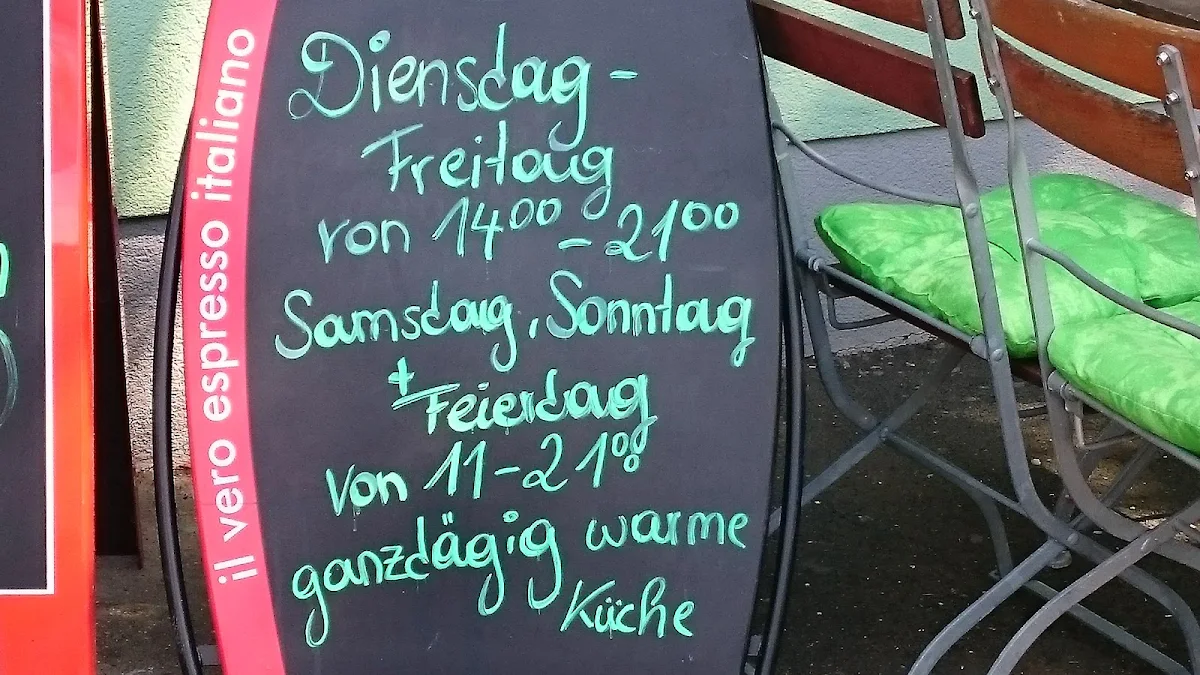 il vero espresso italiano
Diensdag -
Freitag
von 14⁰⁰ - 21⁰⁰
Samsdag, Sonntag
+ Feierdag
von 11 - 21⁰⁰
ganzdägig warme
Küche